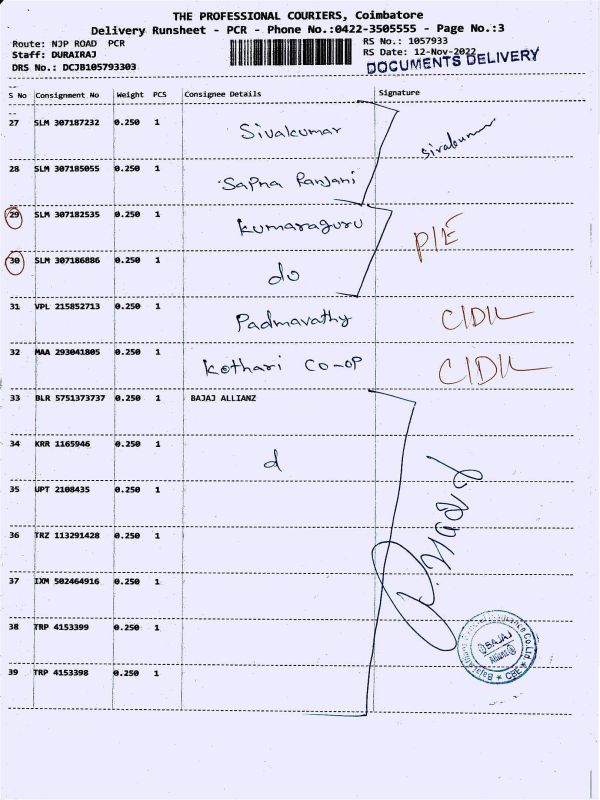 THE PROFESSIONAL COURIERS, Coimbatore
Delivery Runsheet - PCR - Phone No.:0422-3505555 - Page No.:3
Route: NJP ROAD PCR
RS No.: 1057933
Staff: DURAIRAJ
RS Date: 12-Nov-2022
DRS No.: DCJB105793303
DOCUMENTS DELIVERY
S No Consignment No Weight PCS Consignee Details Signature
27 SLM 307187232 0.250 1 Sivakumar Sivakumar
28 SLM 307185055 0.250 1 Sapna Ranjani
29 SLM 307182535 0.250 1 Kumaraguru P/E
30 SLM 307186886 0.250 1 do
31 VPL 215852713 0.250 1 Padmavathy C/D/L
32 MAA 293041805 0.250 1 Kothari Co-op C/D/L
33 BLR 5751373737 0.250 1 BAJAJ ALLIANZ
34 KRR 1165946 0.250 1 d
35 UPT 2108435 0.250 1
36 TRZ 113291428 0.250 1
37 IXM 502464916 0.250 1
38 TRP 4153399 0.250 1
39 TRP 4153398 0.250 1
BAJAJ
Allianz
CBE